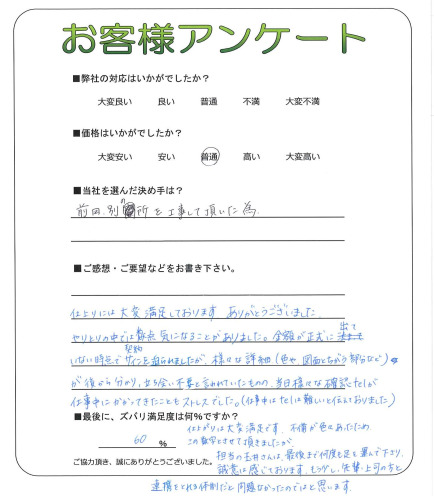 お客様アンケート
■弊社の対応はいかがでしたか？
大変良い 良い 普通 不満 大変不満
■価格はいかがでしたか？
大変安い 安い 普通 高い 大変高い
■当社を選んだ決め手は？
前回、別の所を工事して頂いた為
■ご感想・ご要望などをお書き下さい。
仕上りには大変満足しております ありがとうございました
やりとりの中では数点気になることがありました。金額が正式に出て
いない時点で契約サインを迫られましたが、様々な詳細（色や、図面とちがう部分など）
が後から分かり、立ち会い不要と言われていたものの、当日様々な確認telが
仕事中にかかってきたこともストレスでした。（仕事中はtelは難しいと伝えておりました）
■最後に、ズバリ満足度は何％ですか？
60 %
仕上がりは大変満足です。不備が色々あったため、
この数字とさせて頂きましたが、
ご協力頂き、誠にありがとうございました。
担当の玉井さんは、最後まで何度足を運んで下さり、
誠意は感じております。もう少し、先輩・上司の方と
連携をとれる体制だと問題なかったのではと思います